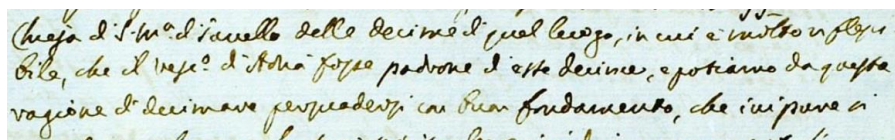 Chiesa di S. M.ª di Savello delle decime di quel luogo, in cui è molto riflessi
bile, che il vesc.º d'Adria fosse padrone d'esse decime, e potiamo da questa
ragione di decimare persuadersi con buon fondamento, che ivi pure vi